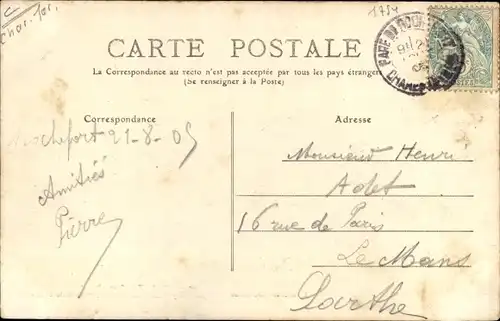 Char. Inf.
1754
CARTE POSTALE
La Correspondance au recto n'est pas acceptée par tous les pays étrangers
(Se renseigner à la Poste)
Correspondance
Adresse
Rochefort 21-8-05
Amitiés
Pierre
Monsieur Henri
Adet
16 rue de Paris
Le Mans
Sarthe